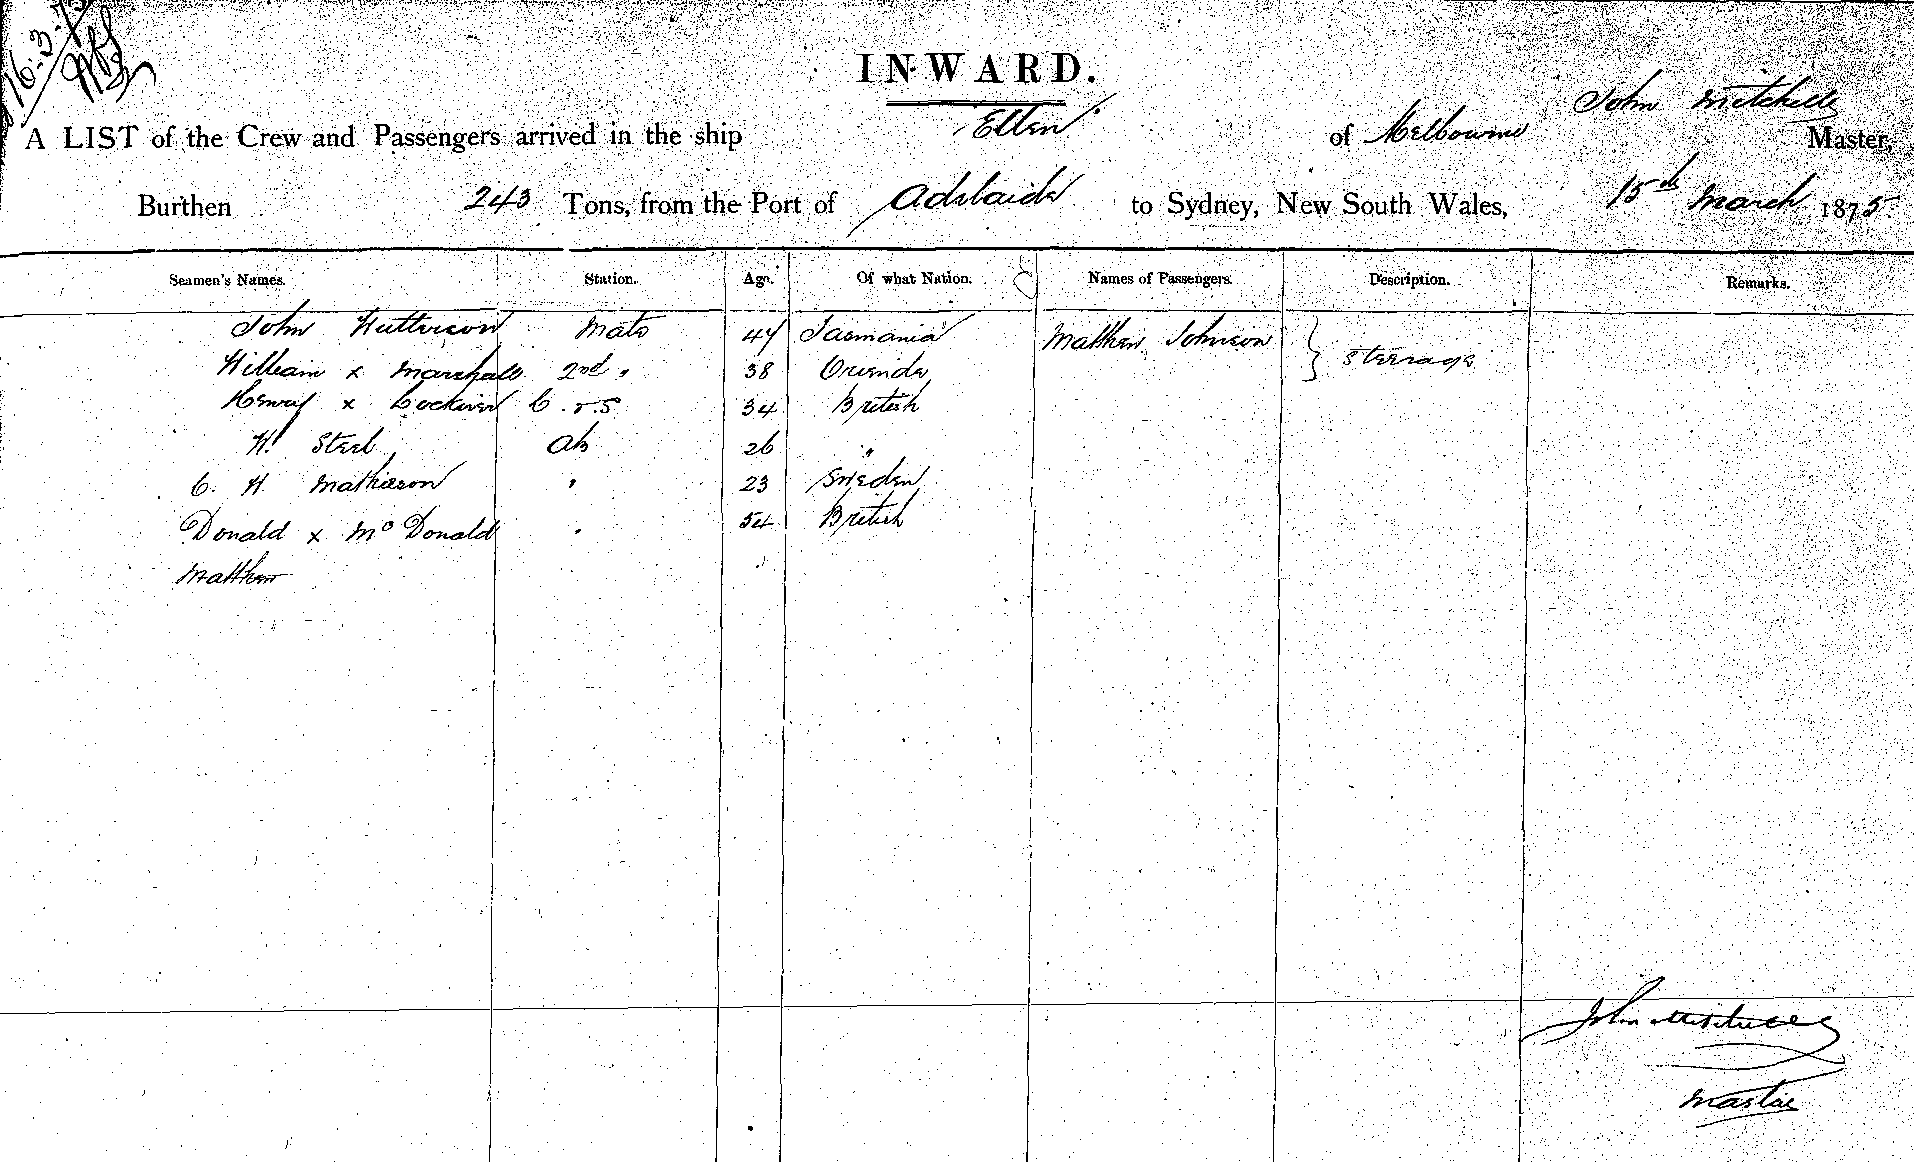 16.3.75
INWARD.
A LIST of the Crew and Passengers arrived in the ship Ellen of Melbourne John Mitchell Master,
Burthen 243 Tons, from the Port of Adelaide to Sydney, New South Wales, 15th March 1875
Seamen's Names. Station. Age. Of what Nation. Names of Passengers. Description. Remarks.
John Mate 47 Tasmania Matthew Johnson } Steerage
William x Marshall 2nd " 38
Henry x C & S 34 British
H. Steel Ab 26 "
C. H. Mathieson " 23 Sweden
Donald x McDonald " 54 British
Matthew
John Mitchell
Master